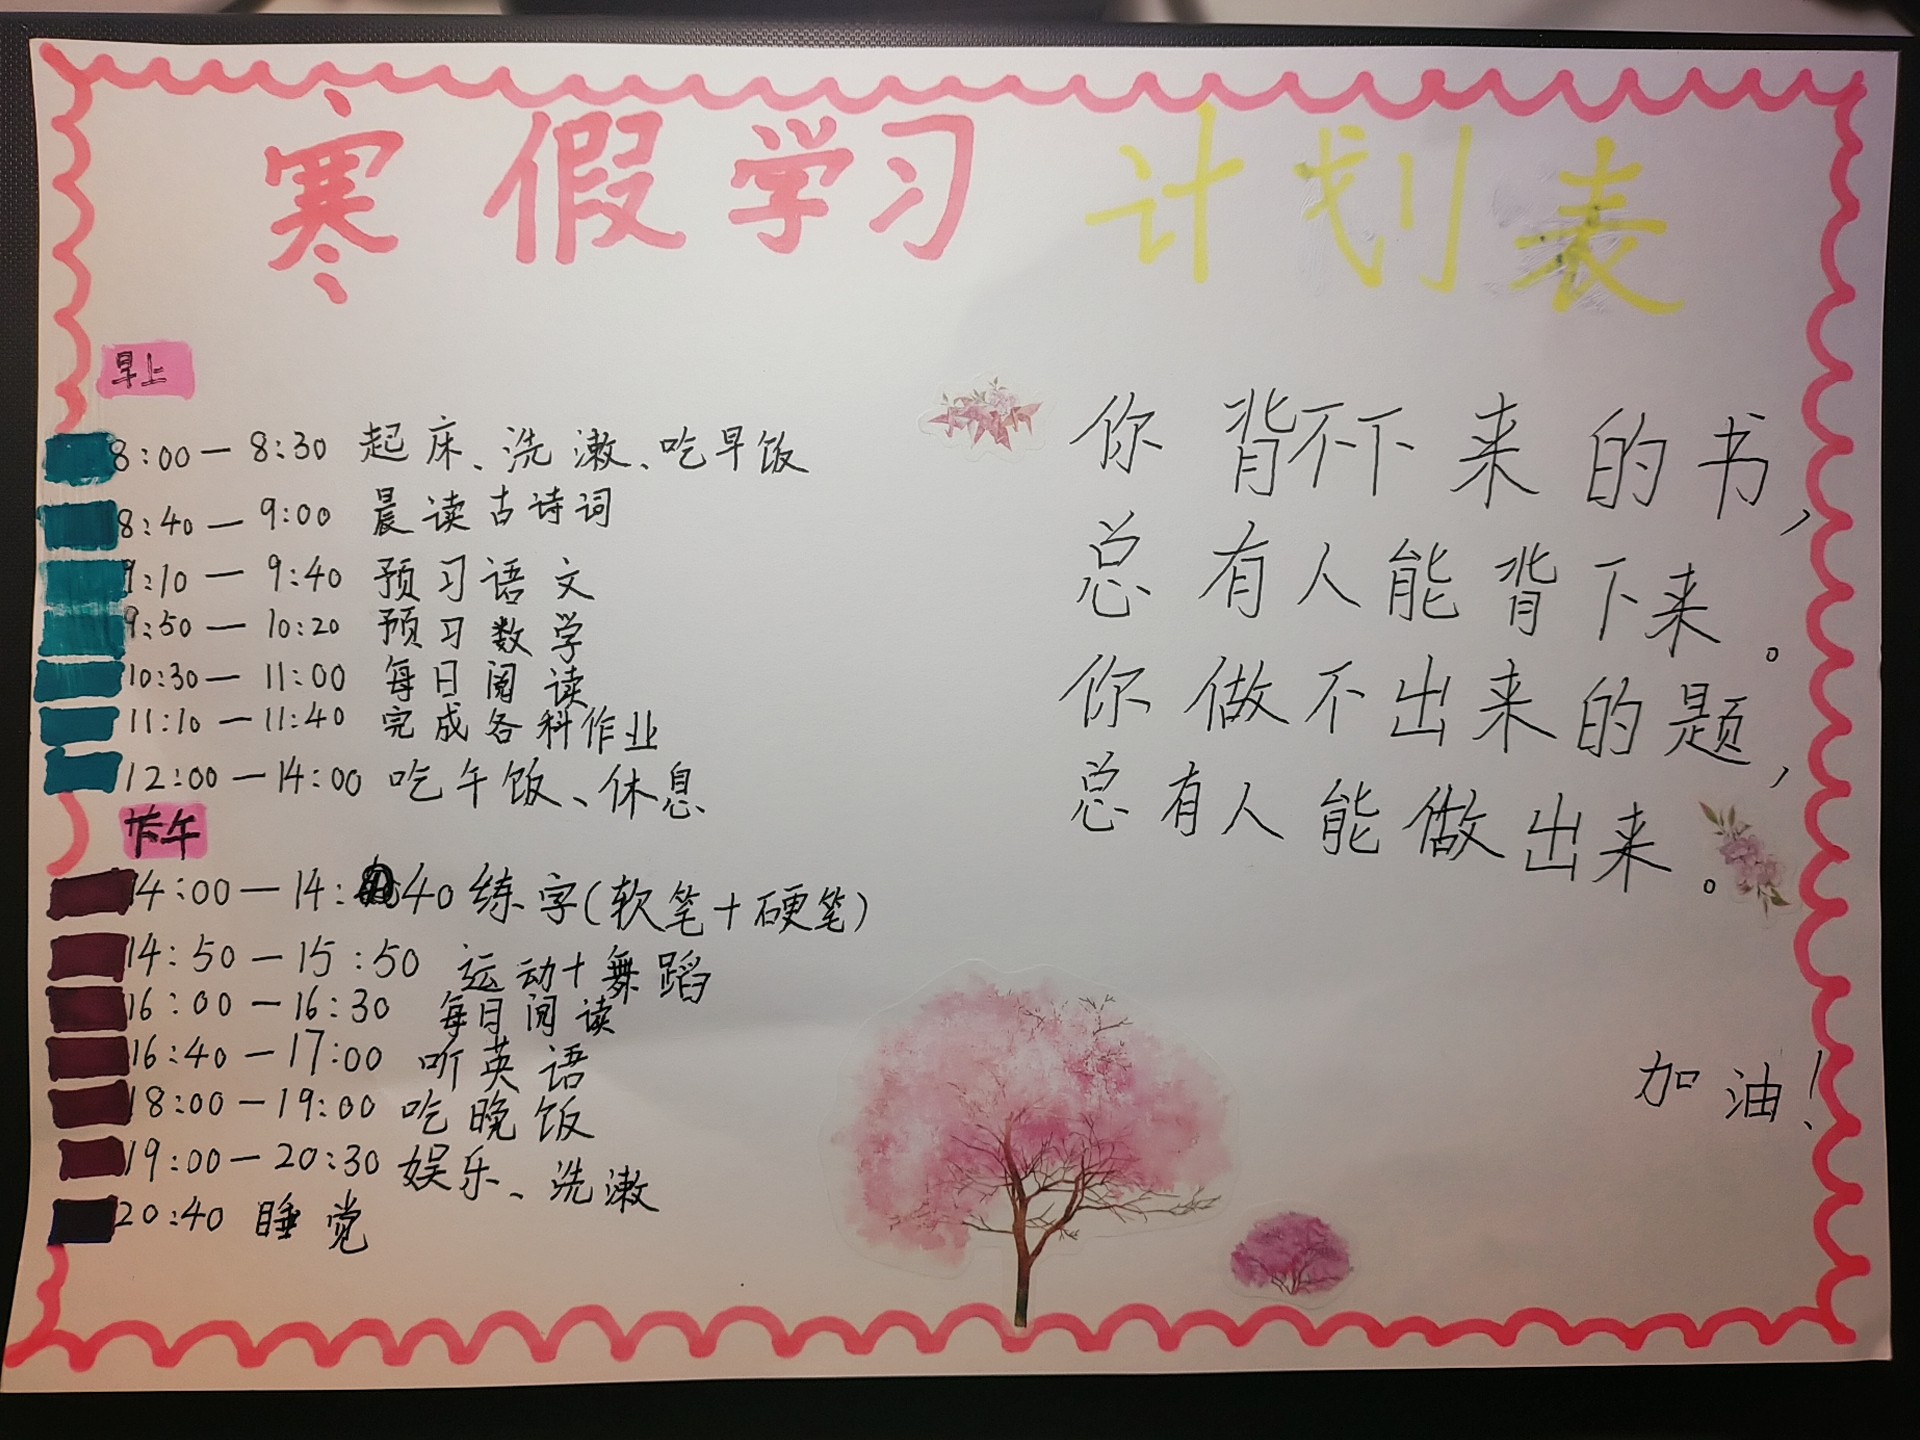 寒假学习计划表
早上
8:00—8:30 起床、洗漱、吃早饭
8:40—9:00 晨读古诗词
9:10—9:40 预习语文
9:50—10:20 预习数学
10:30—11:00 每日阅读
11:10—11:40 完成各科作业
12:00—14:00 吃午饭、休息
下午
14:00—14:40 练字(软笔+硬笔)
14:50—15:50 运动+舞蹈
16:00—16:30 每日阅读
16:40—17:00 听英语
18:00—19:00 吃晚饭
19:00—20:30 娱乐、洗漱
20:40 睡觉
你背不下来的书,
总有人能背下来。
你做不出来的题,
总有人能做出来。
加油!